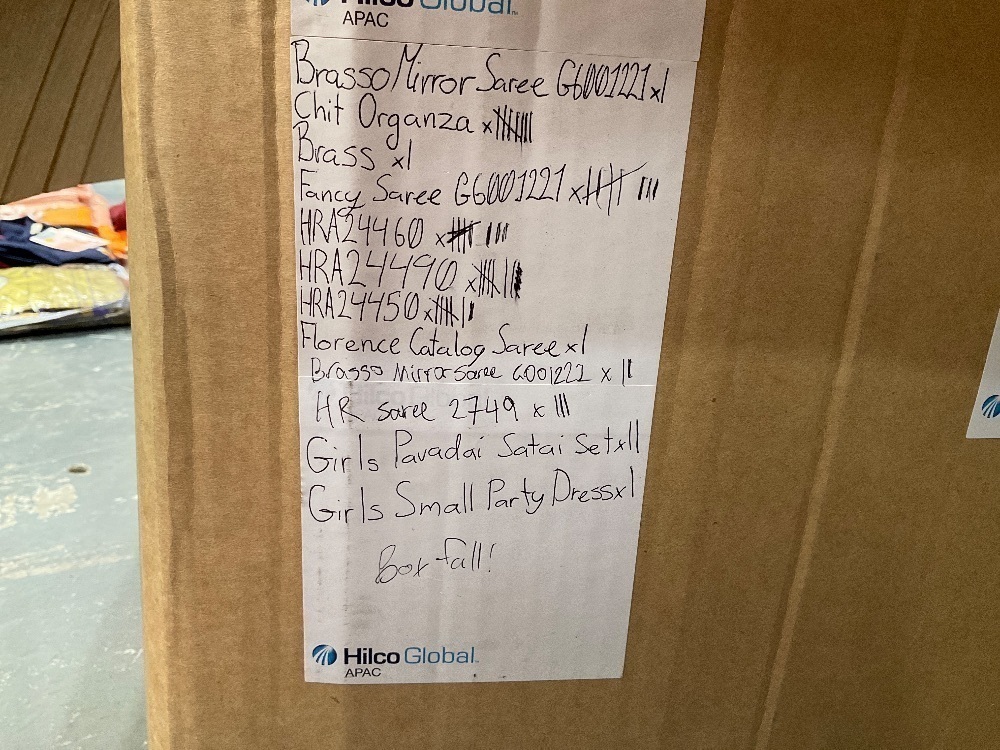 Hilco Global
APAC
Brasso Mirror Saree G6001221 x1
Chit Organza x
Brass x1
Fancy Saree G6001221 x
HRA24460 x
HRA24490 x
HRA24450 x
Florence Catalog Saree x1
Brasso Mirror Saree G001222 x ||
HR saree 2749 x |||
Girls Pavadai Satai Set x||
Girls Small Party Dress x1
Box full!
Hilco Global
APAC